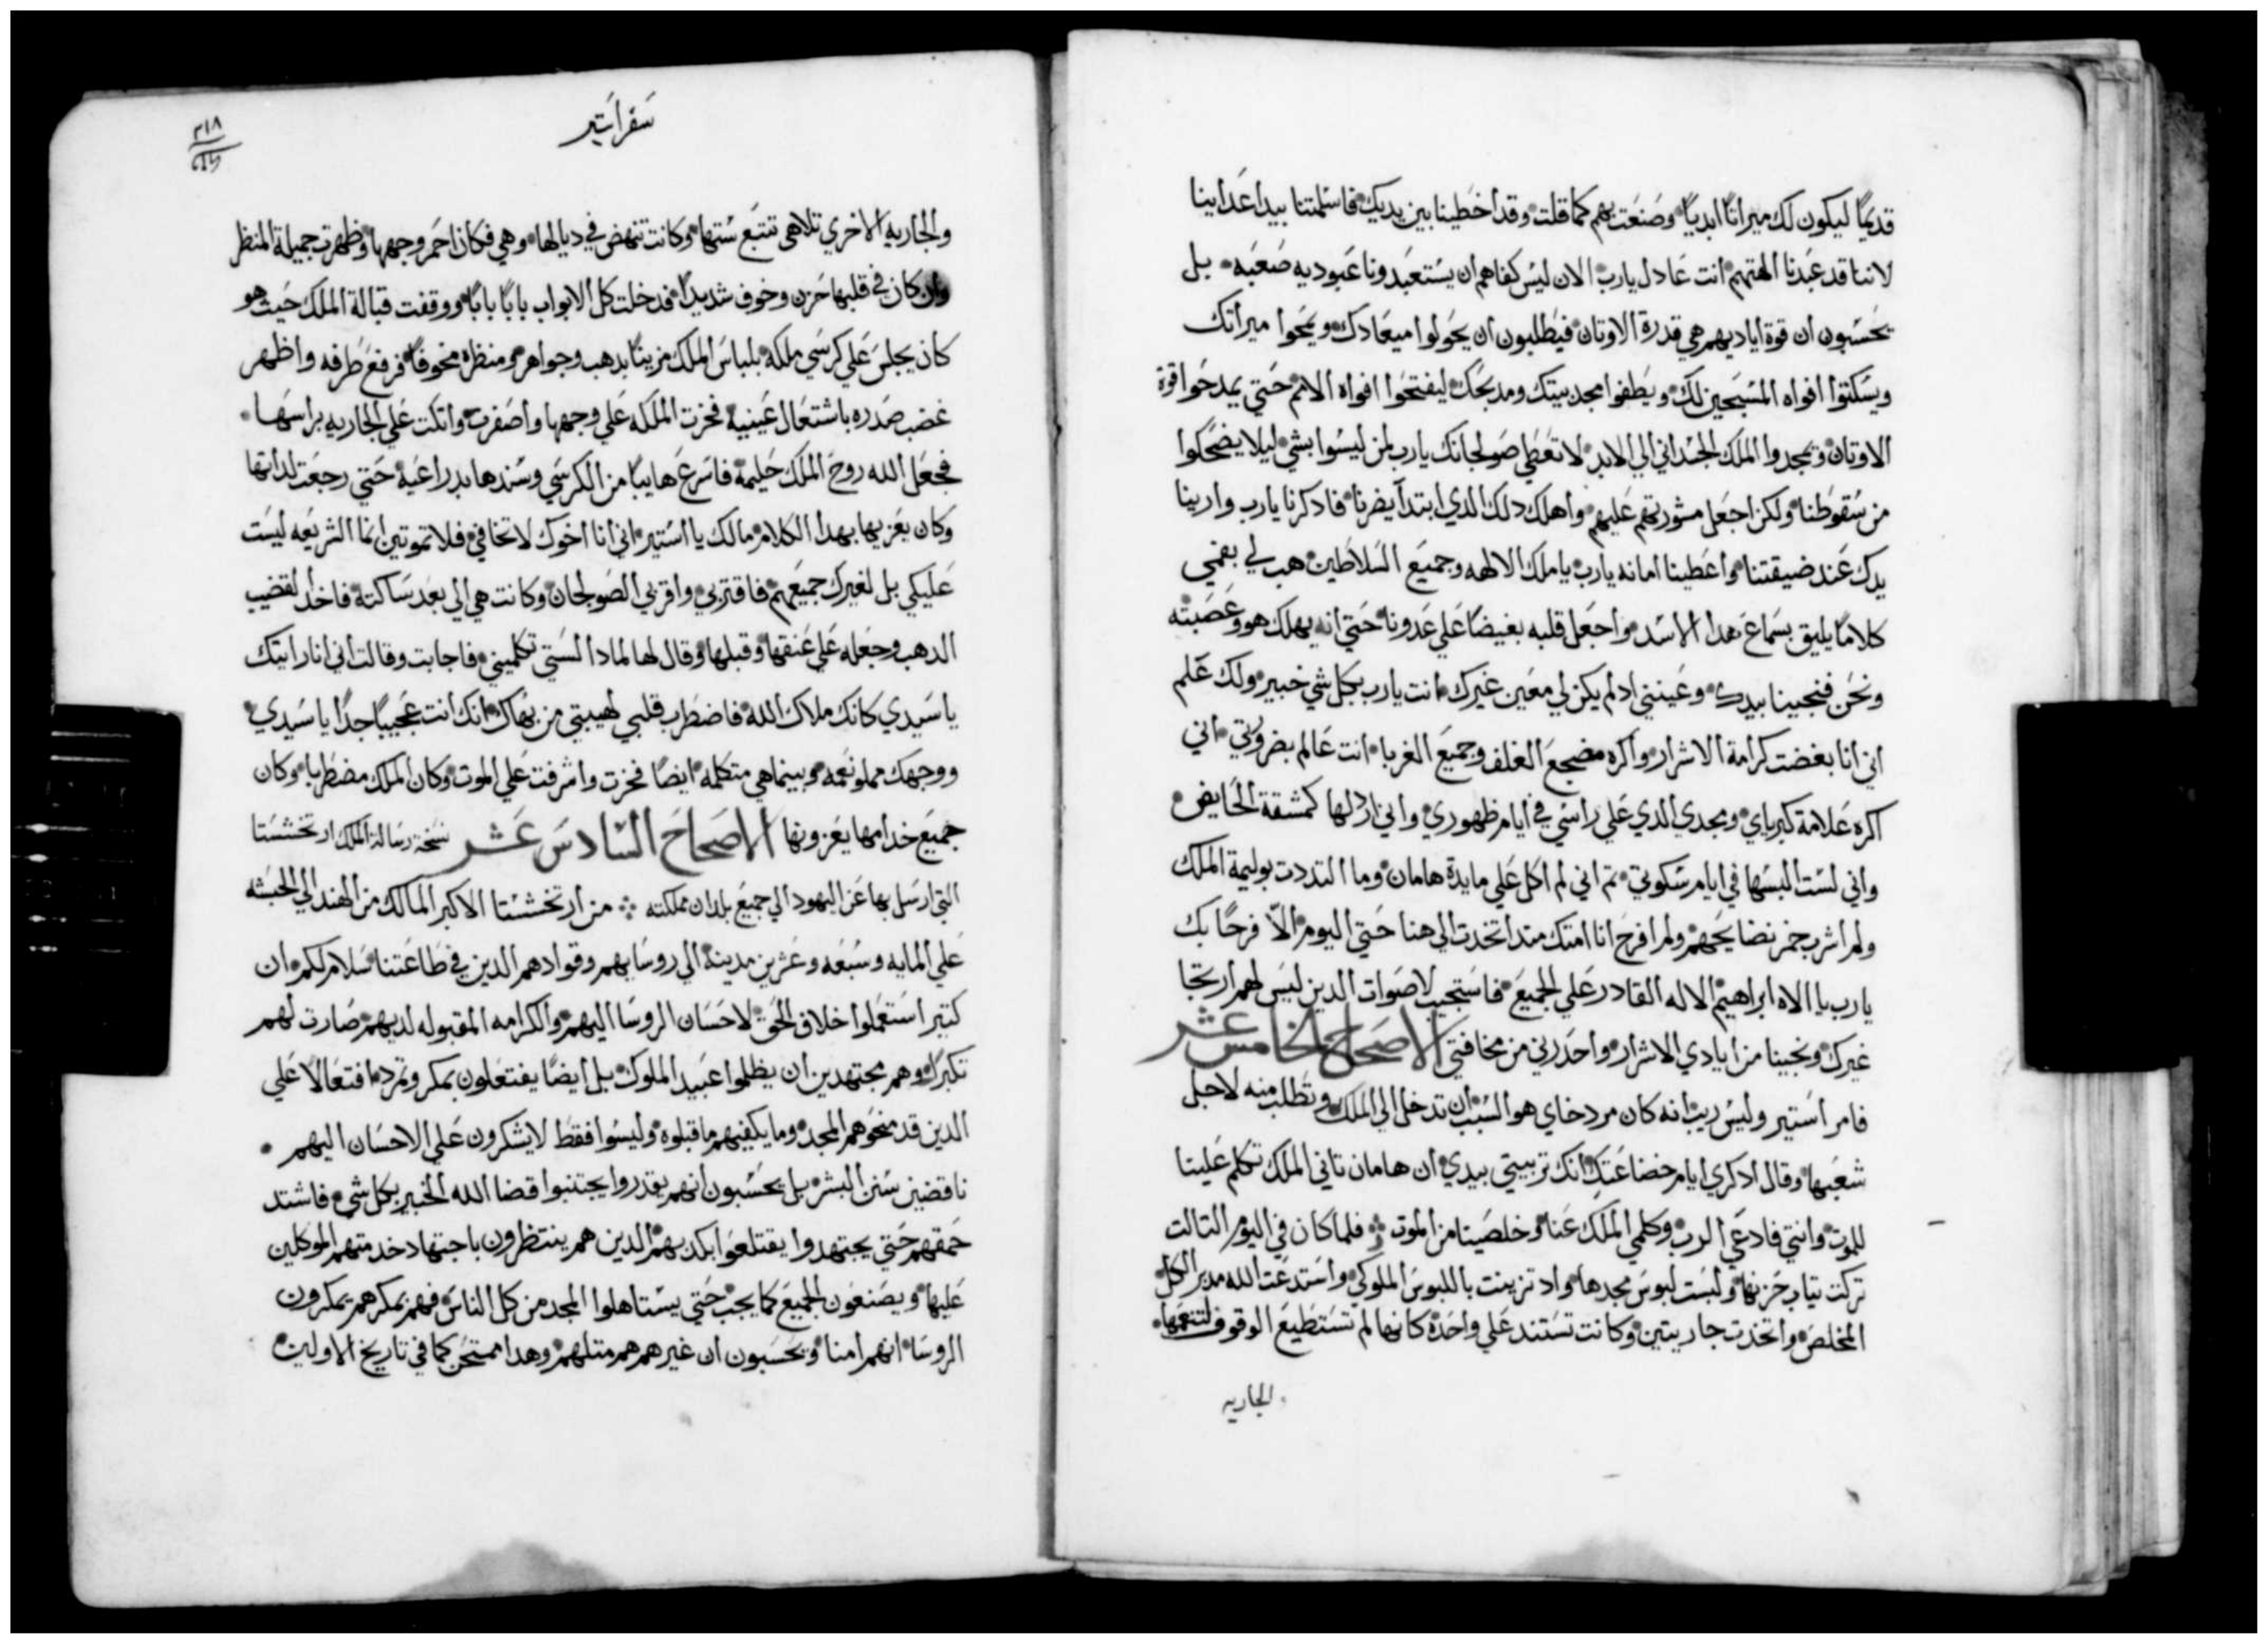 قديمًا ليكون لك ميراتًا ابديًا وصنعت بهم كما قلت وقد اخطينا بين يديك فاسلمتنا بيد اعداينا
لاننا قد عبدنا الهتهم انت عادل يارب الان ليس كفاهم ان يستعبدونا عبوديه صعبه بل
يحسبون ان قوة اياديهم هي قدرة الاوتان فيطلبون ان يحولوا ميعادك ويمحوا ميراتك
ويسكتوا افواه المسبحين لك ويطفوا مجد بيتك ومدبحك ليفتحوا افواه الامم حتي يمدحوا قوة
الاوتان ويمجدوا الملك الجسداني الي الابد لا تعطي صولجانك يارب لمن ليسوا بشي ليلا يضحكوا
من سقوطنا ولكن اجعل مشورتهم عليهم واهلك دلك الدي ابتدا يضرنا فادكرنا يارب وارينا
يدك عند ضيقتنا واعطينا امانه يارب ياملك الالهه وجميع السلاطين هب لي بفمي
كلامًا يليق بسماع هدا الاسد واجعل قلبه بغيضًا علي عدونا حتي انه يهلك هو وعصبته
ونحن فنجينا بيدك وعينني اد لم يكن لي معين غيرك انت يارب بكل شي خبير ولك علم
اني انا بغضت كرامة الاشرار واكره مضجع الغلف وجميع الغربا انت عالم بضروتي اني
اكره علامة كبرياي ومجدي الدي علي راسي في ايام ظهوري واني اردلها كمشقة الحايض
واني لست البسها في ايام سكوتي تم اني لم اكل علي مايدة هامان وما التددت بوليمة الملك
ولم اشرب خمر نضايحهم ولم افرح انا امتك مند اتخدت الي هنا حتي اليوم الّا فرحًا بك
يارب يا الاه ابراهيم الاله القادر علي الجميع فاستجيب لاصوات الدين ليس لهم ارتجا
غيرك ونجينا من ايادي الاشرار واحدرني من مخافتي الاصحاح الخامس عشر
فامر استير وليس ريب انه كان مردخاي هو السبب ان تدخل الي الملك وتطلب منه لاجل
شعبها وقال ادكري ايام خضاعتك انك تربيتي بيدي ان هامان تاني الملك تكلم علينا
للموت وانتي فادعي الرب وكلمي الملك عنا وخلصينا من الموت فلما كان في اليوم التالت
تركت تياب حزنها ولبست لبوس مجدها واد تزينت باللبوس الملوكي واستدعت الله مدبر الكل
المخلص واتخدت جاريتين وكانت تستند علي واحدة كانها لم تستطيع الوقوف لتنعمها
الجاريه
سفر استير
٢١٨
والجاريه الاخري تلاهي تتبع ستها وكانت تنهض في ديالها وهي فكان احمر وجهها وظهرت جميلة المنظر
وان كان في قلبها حزن وخوف شديدًا فدخلت كل الابواب بابًا بابًا ووقفت قبالة الملك حيت هو
كان يجلس علي كرسي ملكه بلباس الملك مزينًا بدهب وجواهر ومنظره مخوفًا فرفع طرفه واظهر
غضب صدره باشتعال عينيه فخرت الملكه علي وجهها واصفرت واتكت علي الجاريه براسها
فجعل الله روح الملك حليمة فاسرع هايبًا من الكرسي وسندها بدراعيه حتي رجعت لداتها
وكان يعزيها بهدا الكلام مالك يا استير اني انا اخوك لا تخافي فلا تموتين انما الشريعه ليست
عليكي بل لغيرك جميعهم فاقتربي واقربي الصولجان وكانت هي الي بعد ساكتة فاخد القضيب
الدهب وجعله علي عنقها وقبلها وقال لها لمادا لستي تكلميني فاجابت وقالت اني انا رايتك
يا سيدي كانك ملاك الله فاضطرب قلبي لهيبتي من بهاك انك انت عجيبًا جدًا يا سيدي
ووجهك مملو نعمه وبينما هي متكلمه ايضًا فخرت واشرفت علي الموت وكان الملك مضطربا وكان
جميع خدامها يعزونها الاصحاح السادس عشر نسخة رسالة الملك ارتخششتا
التي ارسل بها عن اليهود الي جميع بلدان مملكته من ارتخششتا الاكبر المالك من الهند الي الحبشه
علي المايه وسبعه وعشرين مدينة الي روسايهم وقوادهم الدين في طاعتنا سلام لكم ان
كتير استعملوا خلاف الحق لاحسان الروسا اليهم والكرامه المقبوله لديهم صارت لهم
تكبرًا وهم مجتهدين ان يظلموا عبيد الملوك بل ايضًا يفتعلون بمكر وتمرد افتعالًا علي
الدين قد منحوهم المجد وما يكفيهم ما قبلوه وليسوا فقط لا يشكرون علي الاحسان اليهم
ناقضين سنن البشر بل يحسبون انهم يقدروا يجتنبوا قضا الله الخبير بكل شي فاشتد
حمقهم حتي يجتهدوا يقتلعوا بكدبهم الدين هم ينتظرون باجتهاد خدمتهم الموكلين
عليها ويصنعون الجميع كما يجب حتي يستاهلوا المجد من كل الناس فهم بمكرهم يمكرون
الروسا انهم امنا ويحسبون ان غيرهم هم متلهم وهدا ممتحن كما في تاريخ الاولين